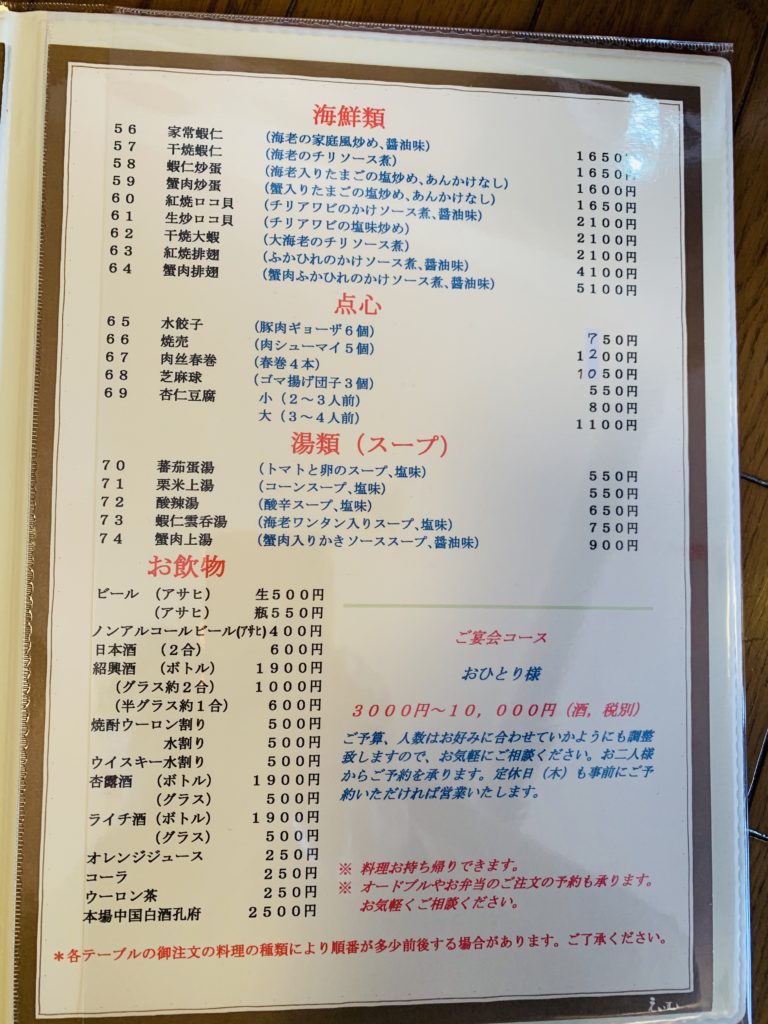 海鮮類
56 家常蝦仁 (海老の家庭風炒め、醤油味) 1650円
57 干焼蝦仁 (海老のチリソース煮) 1650円
58 蝦仁炒蛋 (海老入りたまごの塩炒め、あんかけなし) 1600円
59 蟹肉炒蛋 (蟹入りたまごの塩炒め、あんかけなし) 1650円
60 紅焼ロコ貝 (チリアワビのかけソース煮、醤油味) 2100円
61 生炒ロコ貝 (チリアワビの塩味炒め) 2100円
62 干焼大蝦 (大海老のチリソース煮) 2100円
63 紅焼排翅 (ふかひれのかけソース煮、醤油味) 4100円
64 蟹肉排翅 (蟹肉ふかひれのかけソース煮、醤油味) 5100円
点心
65 水餃子 (豚肉ギョーザ6個) 750円
66 焼売 (肉シューマイ5個) 1200円
67 肉丝春巻 (春巻4本) 1050円
68 芝麻球 (ゴマ揚げ団子3個) 550円
69 杏仁豆腐 小(2～3人前) 800円
大(3～4人前) 1100円
湯類(スープ)
70 蕃茄蛋湯 (トマトと卵のスープ、塩味) 550円
71 栗米上湯 (コーンスープ、塩味) 550円
72 酸辣湯 (酸辛スープ、塩味) 650円
73 蝦仁雲呑湯 (海老ワンタン入りスープ、塩味) 750円
74 蟹肉上湯 (蟹肉入りかきソーススープ、醤油味) 900円
お飲物
ビール (アサヒ) 生500円
(アサヒ) 瓶550円
ノンアルコールビール(アサヒ)400円
日本酒 (2合) 600円
紹興酒 (ボトル) 1900円
(グラス約2合) 1000円
(半グラス約1合) 600円
焼酎ウーロン割り 500円
水割り 500円
ウイスキー水割り 500円
杏露酒 (ボトル) 1900円
(グラス) 500円
ライチ酒(ボトル) 1900円
(グラス) 500円
オレンジジュース 250円
コーラ 250円
ウーロン茶 250円
本場中国白酒孔府 2500円
ご宴会コース
おひとり様
3000円～10,000円(酒,税別)
ご予算、人数はお好みに合わせていかようにも調整
致しますので、お気軽にご相談ください。お二人様
からご予約を承ります。定休日(木)も事前にご予
約いただければ営業いたします。
※ 料理お持ち帰りできます。
※ オードブルやお弁当のご注文の予約も承ります。
お気軽くご相談ください。
＊各テーブルの御注文の料理の種類により順番が多少前後する場合があります。ご了承ください。